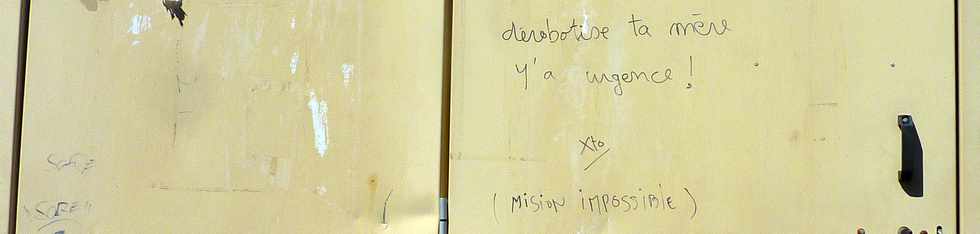 dérobotise ta mère
Y'a urgence !
Xto
( MISION IMPOSSIBLE )